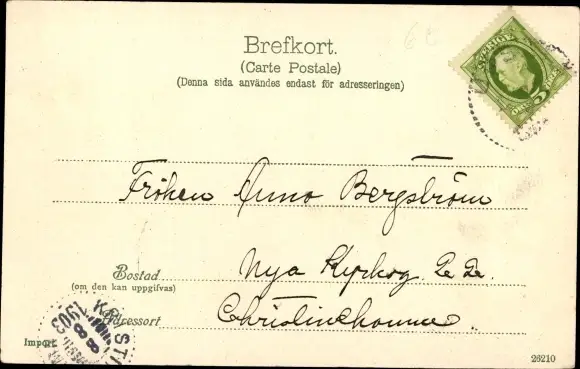 6E
Brefkort.
(Carte Postale)
(Denna sida användes endast för adresseringen)
SVERIGE
5
Fröken Anna Bergström
Bostad Nya Kyrkog. 22.
(om den kan uppgifvas)
Adressort Christinehamn
1903
Import.
26210